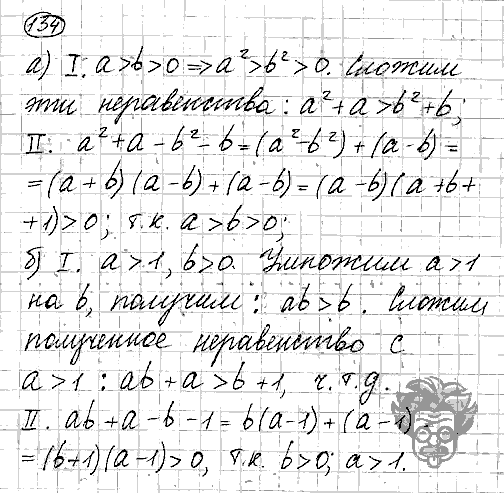 134
а) I. a>b>0 ⇒ a²>b²>0. Сложим
эти неравенства: a²+a>b²+b;
II. a²+a-b²-b=(a²-b²)+(a-b)=
=(a+b)(a-b)+(a-b)=(a-b)(a+b+
+1)>0; т.к. a>b>0;
б) I. a>1, b>0. Умножим a>1
на b, получим: ab>b. Сложим
полученное неравенство с
a>1: ab+a>b+1, ч.т.д.
II. ab+a-b-1=b(a-1)+(a-1)=
=(b+1)(a-1)>0, т.к. b>0; a>1.